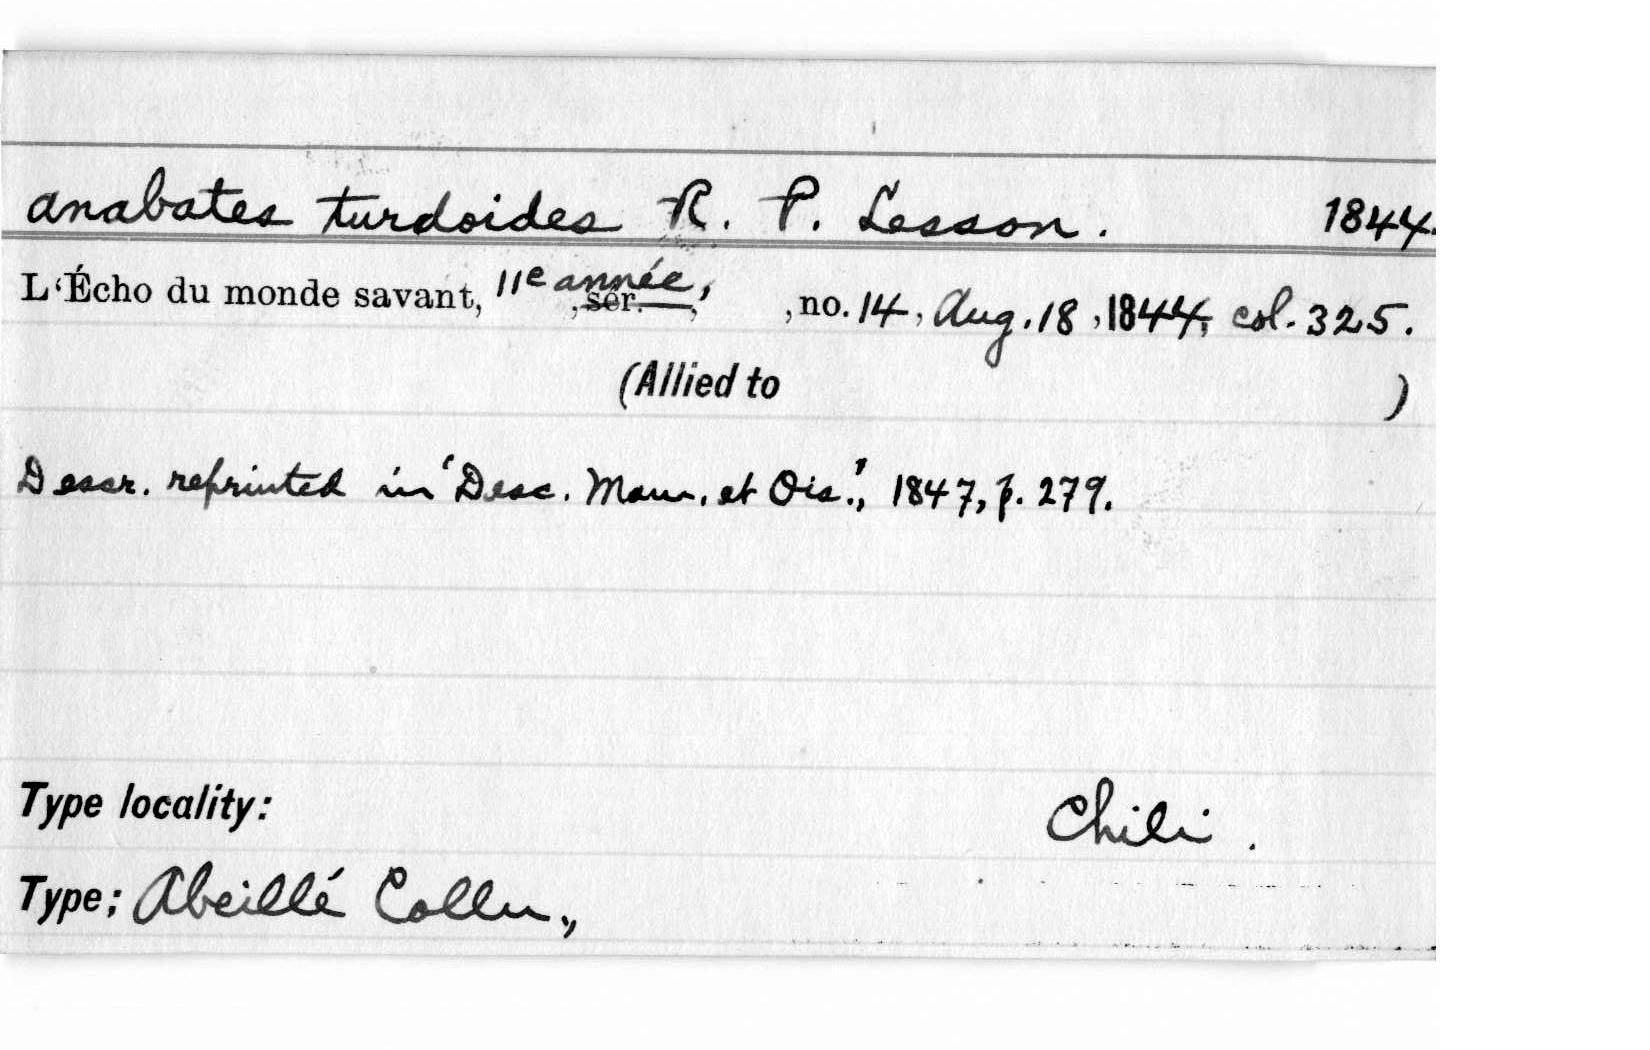 Anabates turdoides R. P. Lesson. 1844.
L'Écho du monde savant, 11e année, , sér. , , no. 14, Aug. 18, 1844, col. 325.
(Allied to )
Descr. reprinted in 'Desc. Mam. et Ois.', 1847, p. 279.
Type locality: Chili.
Type; Abeillé Colln.,